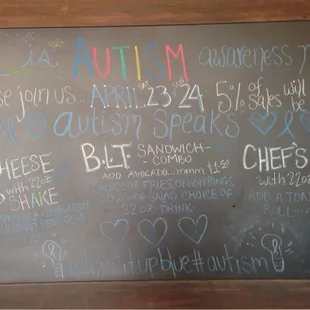 is AUTISM awareness
se join us... APRIL 23rd & 24 5% of sales will be
autism speaks
CHEESE
with 22oz
SHAKE
B.L.T SANDWICH
- COMBO -
ADD AVOCADO...mmm $1.50
CHOICE OF FRIES, ONION RINGS,
SOUP-OR-SALAD CHOICE OF
22oz DRINK
CHEF'S
with 22oz
ADD A TOA
ROLL....
#lightitupblue #autism